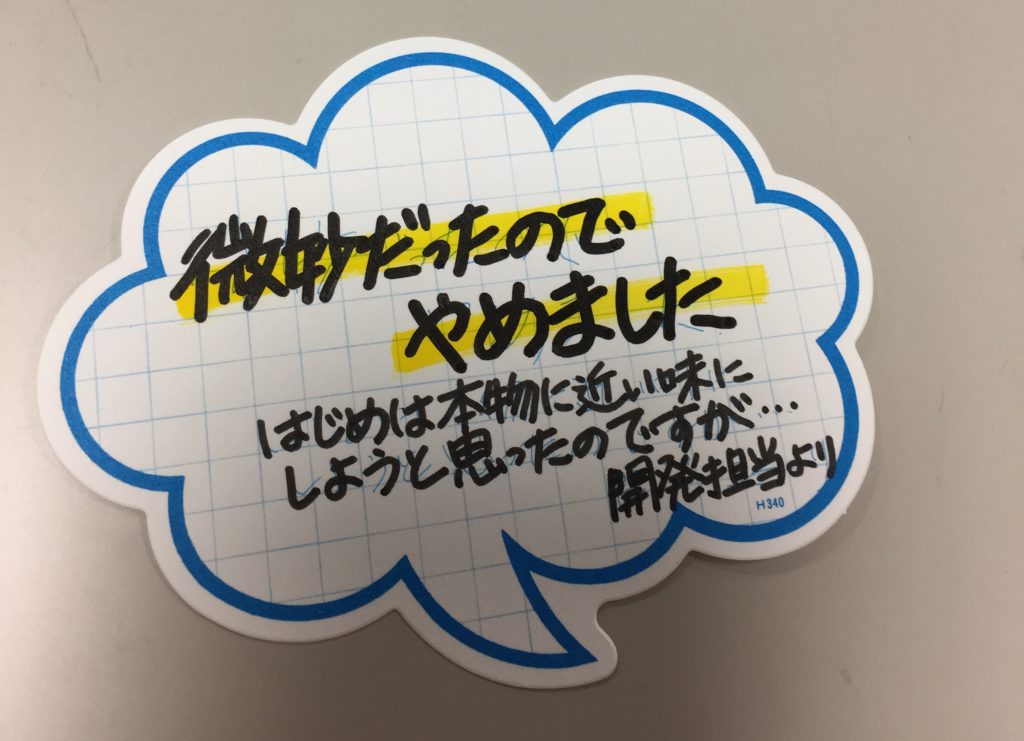 微妙だったので
やめました
はじめは本物に近い味に
しようと思ったのですが…
開発担当より
H340